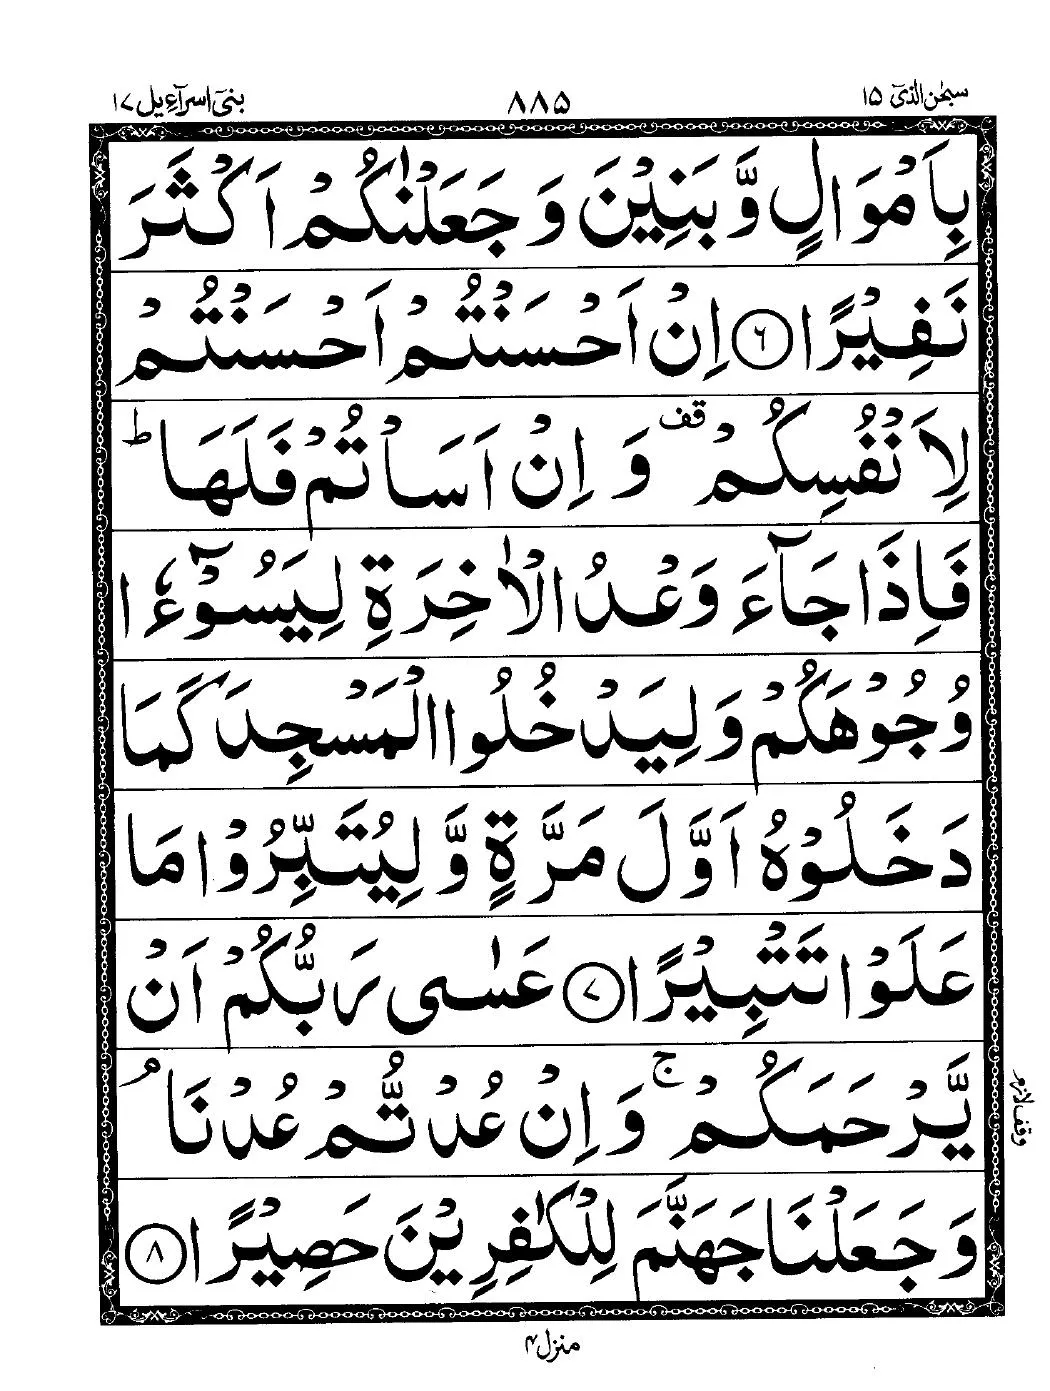 سبحٰن الذیٓ ١٥ ٨٨٥ بنیٓ اسرآءیل ١٧
بِاَمْوَالٍ وَّ بَنِيْنَ وَ جَعَلْنٰكُمْ اَكْثَرَ
نَفِيْرًا ٦ اِنْ اَحْسَنْتُمْ اَحْسَنْتُمْ
لِاَنْفُسِكُمْ قف وَ اِنْ اَسَاْتُمْ فَلَهَا ط
فَاِذَا جَآءَ وَعْدُ الْاٰخِرَةِ لِيَسُوْٓءٗا
وُجُوْهَكُمْ وَ لِيَدْخُلُوا الْمَسْجِدَ كَمَا
دَخَلُوْهُ اَوَّلَ مَرَّةٍ وَّ لِيُتَبِّرُوْا مَا
عَلَوْا تَتْبِيْرًا ٧ عَسٰى رَبُّكُمْ اَنْ
يَّرْحَمَكُمْ ج وَ اِنْ عُدْتُّمْ عُدْنَا م
وقف لازم
وَ جَعَلْنَا جَهَنَّمَ لِلْكٰفِرِيْنَ حَصِيْرًا ٨
منزل ۴